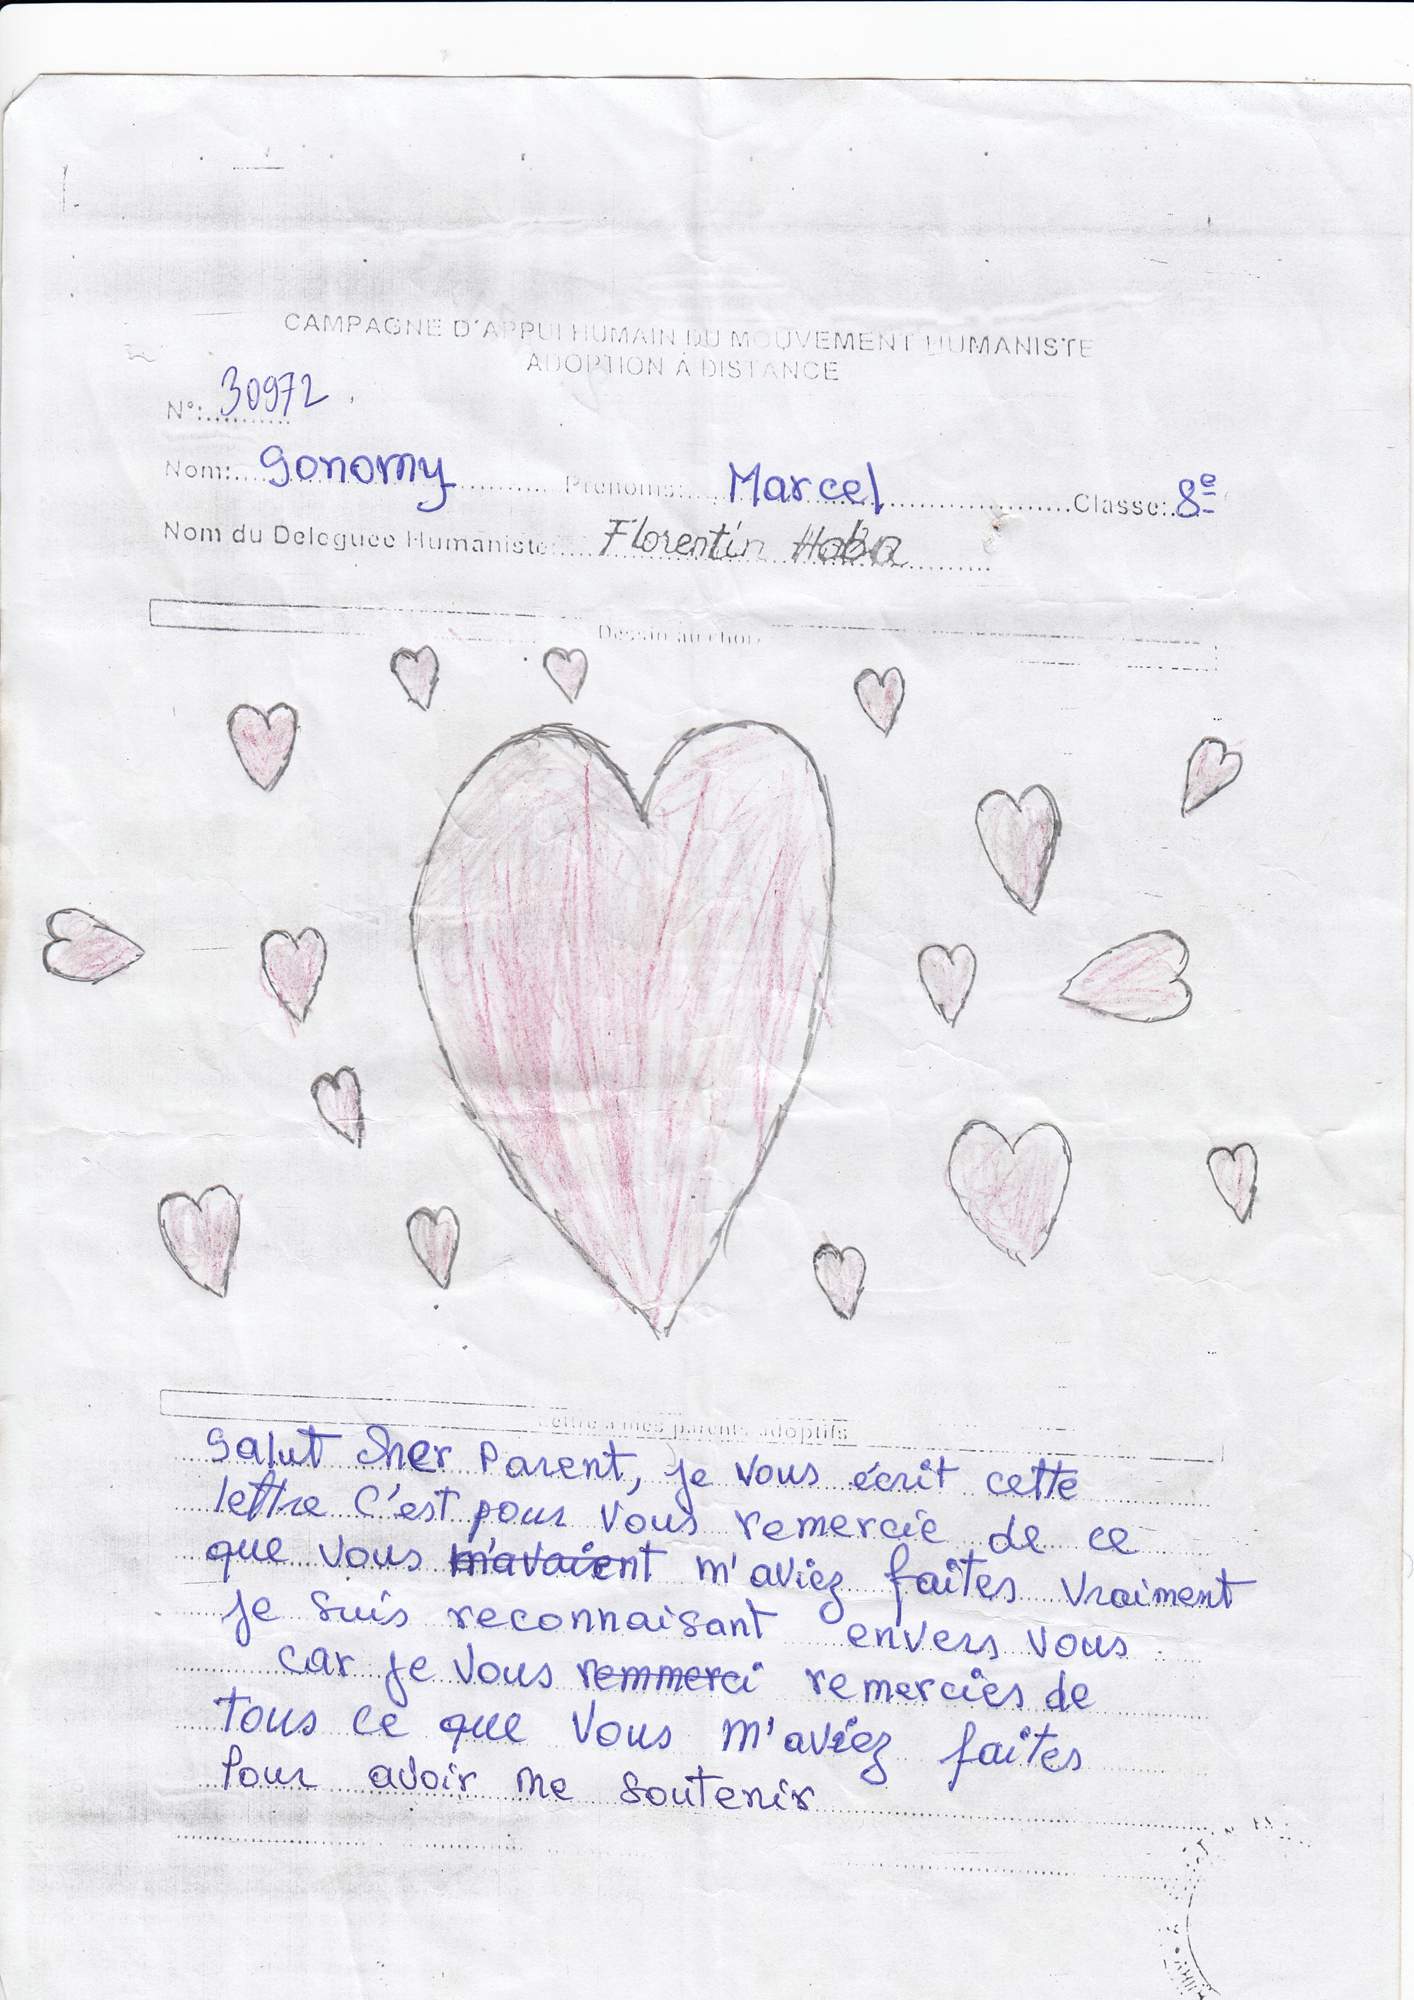 CAMPAGNE D'APPUI HUMAIN DU MOUVEMENT HUMANISTE
ADOPTION À DISTANCE
N°: 30972
Nom: Gonomy Prénoms: Marcel Classe: 8e
Nom du Deleguée Humaniste: Florentin Haba
Dessin au choix
Lettre a mes parents adoptifs
Salut cher Parent, je vous écrit cette
lettre c'est pour vous remercie de ce
que vous m'avaient m'aviez faites vraiment
je suis reconnaisant envers vous
car je vous remmerci remercies de
tous ce que vous m'aviez faites
Pour avoir me soutenir